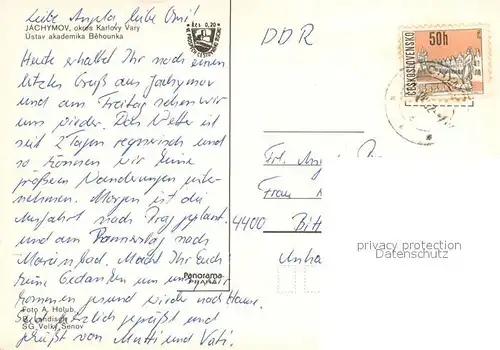 Liebe Angela, liebe Omi!
JÁCHYMOV, okres Karlovy Vary
Ústav akademika Běhounka
Kčs 0,20
Heute erhaltet Ihr noch einen
letzten Gruß aus Jáchymov
und am Freitag sehen wir
uns wieder. Das Wetter ist
seit 2 Tagen regnerisch und
so können wir keine
größeren Wanderungen unter-
nehmen. Morgen ist die
Ausfahrt nach Prag geplant
und am Donnerstag nach
Marienbad. Macht Ihr Euch
keine Gedanken um uns, wir
kommen gesund wieder nach Hause.
Seid herzlich gegrüßt und
geküßt von Mutti und Vati.
Panorama
Foto A. Holub,
B. Landisch
SG Velký Šenov
DDR
50h
ČESKOSLOVENSKO
Frl.
Frau
4400 Bitt
privacy protection
Datenschutz